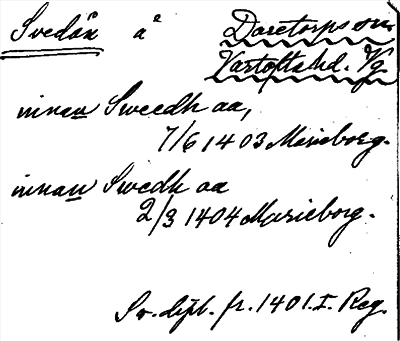 Svedån å Daretorps sn.
Vartofta hd. Vg
innan Swedh aa,
7/6 1403 Marieborg.
innan Swedh aa
2/3 1404 Marieborg.
Sv. dipl. fr. 1401. I. Reg.